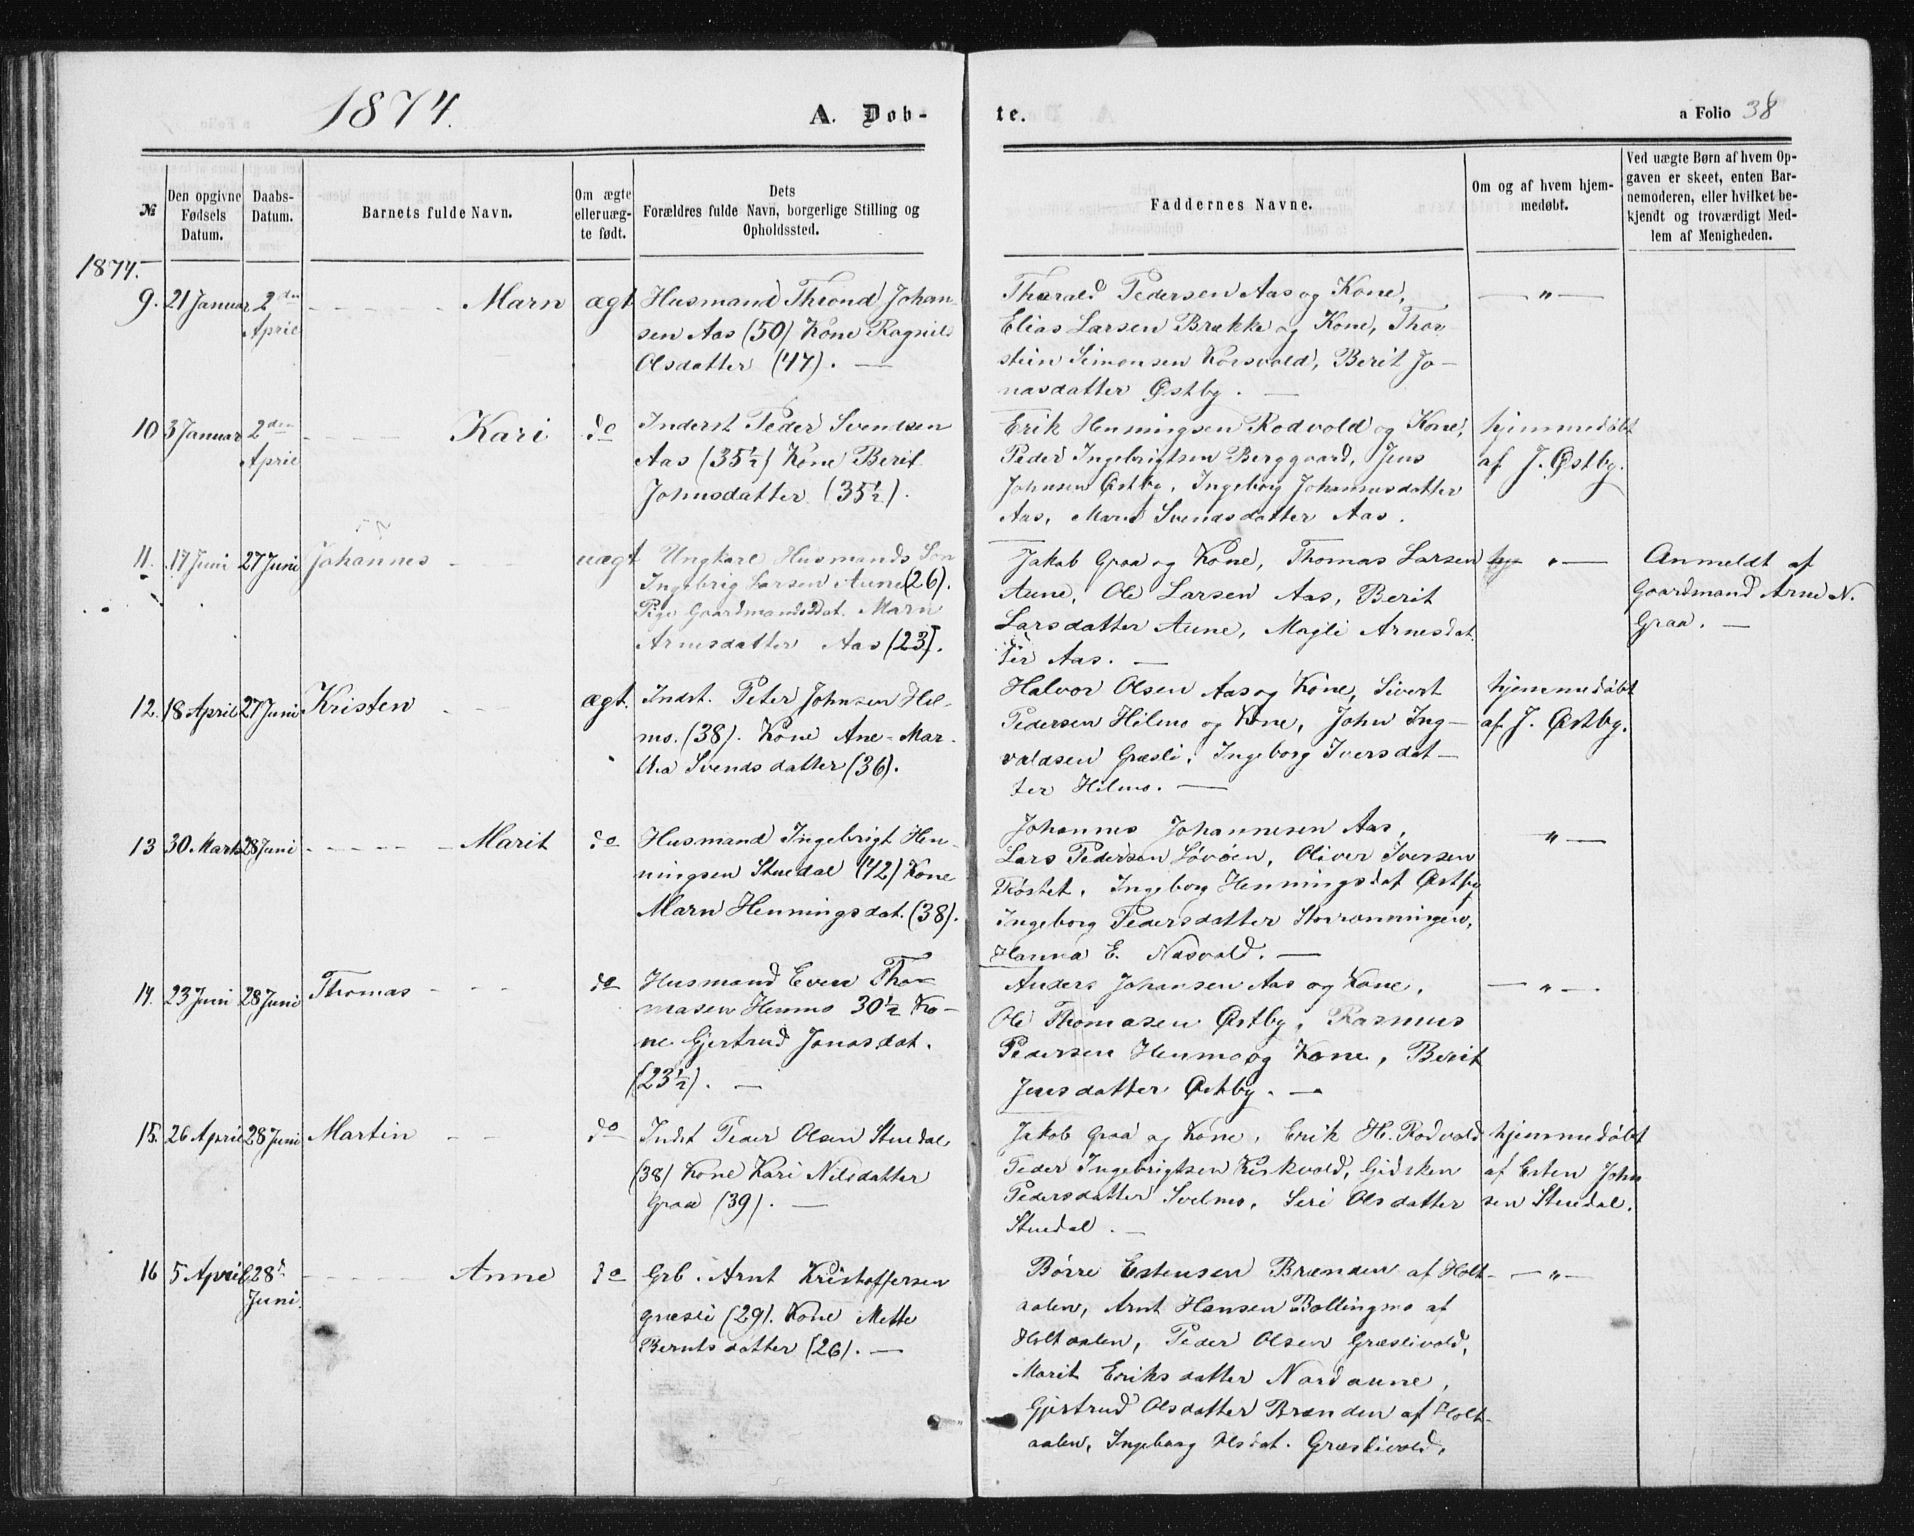 1874.
A. Dob-
te.
a Folio 38
№
Den opgivne
Fødsels
Datum.
Daabs-
Datum.
Barnets fulde Navn.
Om ægte
elleruæg-
te født.
Dets
Forældres fulde Navn, borgerlige Stilling og
Opholdssted.
Faddernes Navne.
Om og af hvem hjem-
medøbt.
Ved uægte Børn af hvem Op-
gaven er skeet, enten Bar-
nemoderen, eller hvilket be-
kjendt og troværdigt Med-
lem af Menigheden.
1874.
9. 21 Januar 2den
April
Marn
ægt
Husmand Thrond Johan-
sen Aas (50) Kone Ragnild
Olsdatter (47). —
Tharald Pedersen Aas og Kone,
Elias Larsen Brække og Kone, Thor-
stein Simonsen Korsvold, Berit Jo-
nasdatter Østby. —
— " —
10 3 Januar 2den
April
Kari
do
Inderst Peder Svendsen
Aas (35½) Kone Berit
Johnsdatter (35½).
Erik Henningsen Rodvold og Kone,
Peder Ingebrigtsen Berggaard, Jens
Johnsen Østby, Ingeborg Johannesdatter
Aas, Marn Svendsdatter Aas.
hjemmedøbt
af J. Østby.
11. 17 Juni 27 Juni Johannes
uægt
Ungkarl Husmands Søn
Ingebrig Larsen Aune (26).
Pige Gaardmandsdat. Marn
Arnesdatter Aas (23).
Jakob Graa og Kone, Thomas Larsen
Aune, Ole Larsen Aas, Berit
Larsdatter Aune, Magli Arnesdat
ter Aas. —
" —
Anmeldt af
Gaardmand Arne N.
Graa. —
12. 18 April 27 Juni Kristen
ægt.
Indst. Peter Johnsen Hil-
mo. (38). Kone Ane-Mar-
tha Svendsdatter (36).
Halvor Olsen Aas og Kone, Sivert
Pedersen Hilmo og Kone, John Ing-
valdsen Græsli, Ingeborg Iversdat-
ter Hilmo. —
hjemmedøbt
af J. Østby.
13 30 Marts 28 Juni
Marit
do
Husmand Ingebrigt Hen-
ningsen Stuedal (42) Kone
Marn Henningsdat. (38).
Johannes Johannesen Aas,
Lars Pedersen Løvøen, Oliver Iversen
Røstet, Ingeborg Henningsdat Østby
Ingeborg Pedersdatter Storrønningen,
Hanna E. Næsvold. —
" —
14. 23 Juni 28 Juni Thomas
do
Husmand Even Tho-
masen Henmo 30½ Ko-
ne Gjertrud Jonasdat.
(23½). —
Anders Johansen Aas og Kone,
Ole Thomasen Østby, Rasmus
Pedersen Henmo og Kone, Berit
Jensdatter Østby. —
— " —
15. 26 April 28 Juni Martin
do
Indst Peder Olsen Stuedal
(38) Kone Kari Nilsdatter
Graa (39). —
Jakob Graa og Kone, Erik H. Rodvold
Peder Ingebrigtsen Kirkvold, Gidsken
Pedersdatter Svelmo, Seri Olsdatter
Stuedal. —
hjemmedøbt
af Esten John
sen Stuedal.
16 5 April 28de
Juni.
Anne
do
Grb. Arnt Kristoffersen
Græsli (29). Kone Mette
Berntsdatter (26). —
Børre Estensen Brænden af Holt-
aalen, Arnt Hansen Bollingmo af
Holtaalen, Peder Olsen Græslivold,
Marit Eriksdatter Nordaune,
Gjertrud Olsdatter Brænden af Holt-
aalen, Ingeborg Olsdat. Græslivold,
— " —